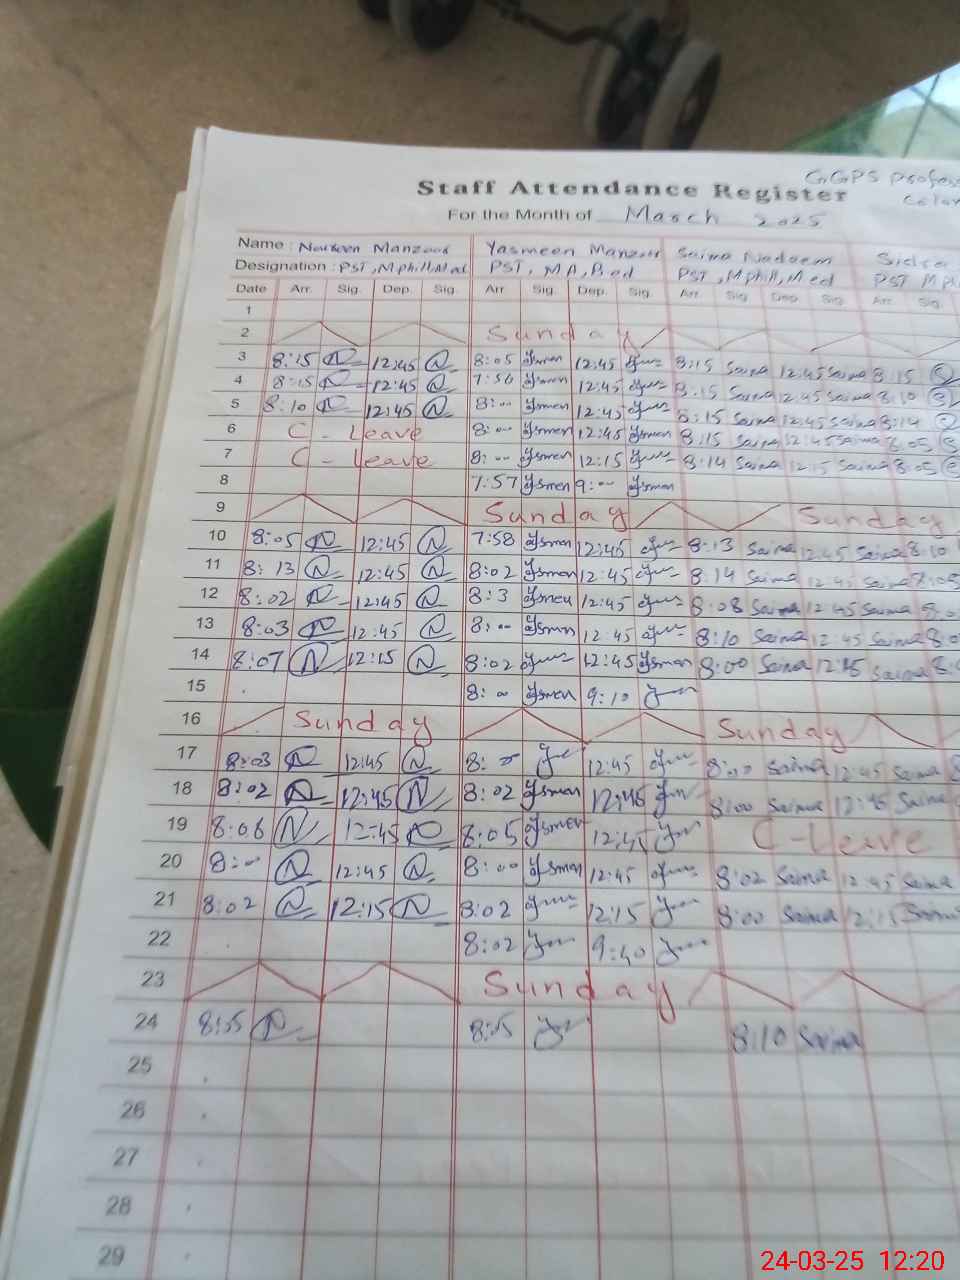 GGPS Profess
Color
Staff Attendance Register
For the Month of March 2025
Name : Nasreen Manzoor Yasmeen Manzoor Saima Nadeem
Designation : PST, Mphill, M.ed PST, MA, B.ed PST, Mphill, M.ed PST Mph
Date Arr. Sig. Dep. Sig. Arr Sig. Dep. Sig. Arr. Sig. Dep. Sig. Arr. Sig.
1
2 Sunday
3 8:15 N 12:45 N 8:05 Ysmen 12:45 8:15 Saima 12:45 Saima 8:15
4 8:15 N 12:45 N 7:56 Ysmen 12:45 8:15 Saima 12:45 Saima 8:10
5 8:10 N 12:45 N 8:00 Ysmen 12:45 8:15 Saima 12:45 Saima 8:14
6 C - Leave 8:00 Ysmen 12:45 Ysmen 8:15 Saima 12:45 Saima 8:05
7 C - Leave 8:00 Ysmen 12:15 8:14 Saima 12:15 Saima 8:05
8 7:57 Ysmen 9:00 Ysmen
9 Sunday Sunday
10 8:05 N 12:45 N 7:58 Ysmen 12:45 8:13 Saima 12:45 Saima 8:10
11 8:13 N 12:45 N 8:02 Ysmen 12:45 8:14 Saima 12:45 Saima
12 8:02 N 12:45 N 8:3 Ysmen 12:45 8:08 Saima 12:45 Saima
13 8:03 N 12:45 N 8:00 Ysmen 12:45 8:10 Saima 12:45 Saima
14 8:07 N 12:15 N 8:02 12:45 Ysmen 8:00 Saima 12:15 Saima
15 8:00 Ysmen 9:10
16 Sunday Sunday
17 8:03 N 12:45 N 8:00 12:45 8:00 Saima 12:45 Saima
18 8:02 N 12:45 N 8:02 Ysmen 12:45 8:00 Saima 12:45 Saima
19 8:06 N 12:45 N 8:05 Ysmen 12:45 C-Leave
20 8:00 N 12:45 N 8:00 Ysmen 12:45 8:02 Saima 12:45 Saima
21 8:02 N 12:15 N 8:02 12:15 8:00 Saima 12:15 Saima
22 8:02 9:40
23 Sunday
24 8:05 N 8:05 8:10 Saima
25
26
27
28
29
24-03-25 12:20